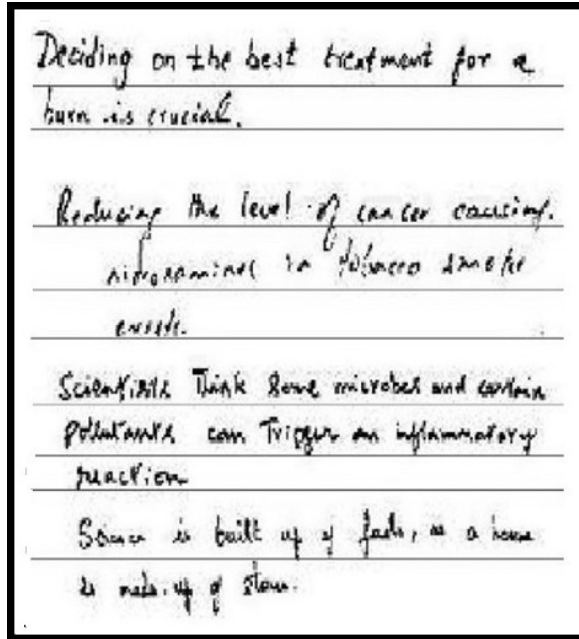 Deciding on the best treatment for a
burn is crucial.
Reducing the level of cancer causing
nitrosamines in tobacco smoke
Scientists Think Some microbes and certain
pollutants can Trigger an inflammatory
reaction
Science is built up of facts, as a house
is made up of stone.